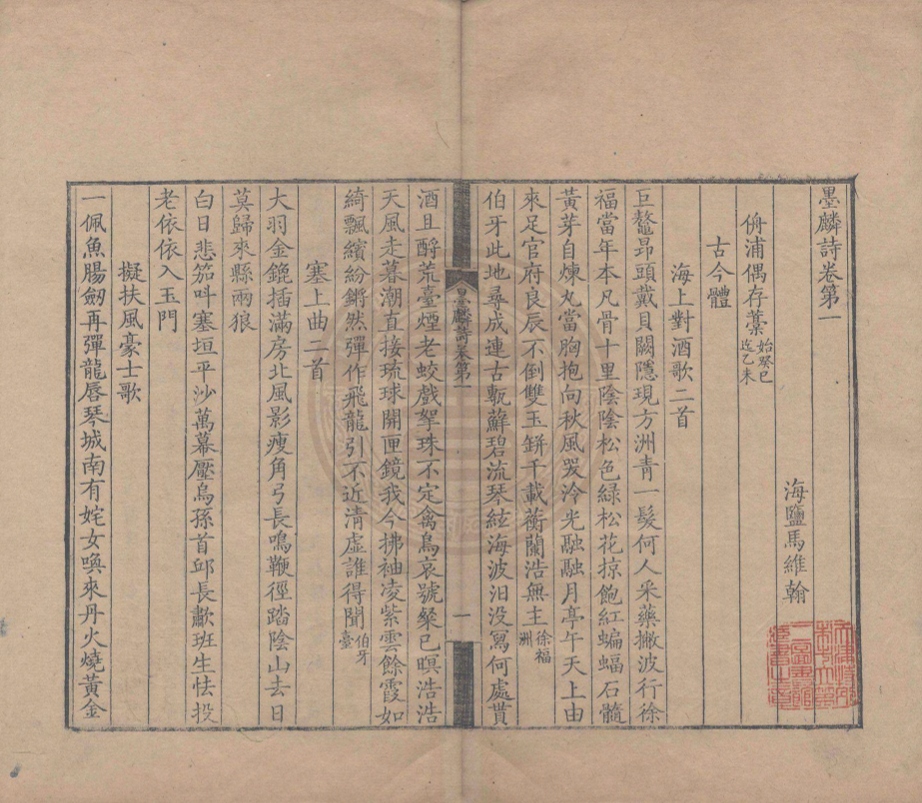 墨麟詩卷第一
海鹽馬維翰
侜浦偶存藁始癸巳迄乙未
古今體
海上對酒歌二首
巨鼇昂頭戴貝闕隱現方洲青一髮何人采藥撇波行徐
福當年本凡骨十里陰陰松色綠松花掠飽紅蝙蝠石髓
黃芽自煉丸當胸抱向秋風哭泠光融融月亭午天上由
來足官府良辰不倒雙玉缾千載蘅蘭浩無主徐福洲
伯牙此地尋成連古甎蘚碧流琴絃海波汩没寫何處貰
酒且酹荒臺煙老蛟戲拏珠不定禽鳥哀號粲已暝浩浩
天風走暮潮直接琉球開匣鏡我今拂袖凌紫雲餘霞如
綺飄繽紛鏘然彈作飛龍引不近清虛誰得聞伯牙臺
塞上曲二首
大羽金鎞插滿房北風影瘦角弓長鳴鞭徑踏陰山去日
莫歸來縣兩狼
白日悲笳叫塞垣平沙萬幕壓烏孫首邱長歗班生怯投
老依依入玉門
擬扶風豪士歌
一佩魚腸劒再彈龍唇琴城南有姹女喚來丹火燒黃金
墨麟詩卷第一
一